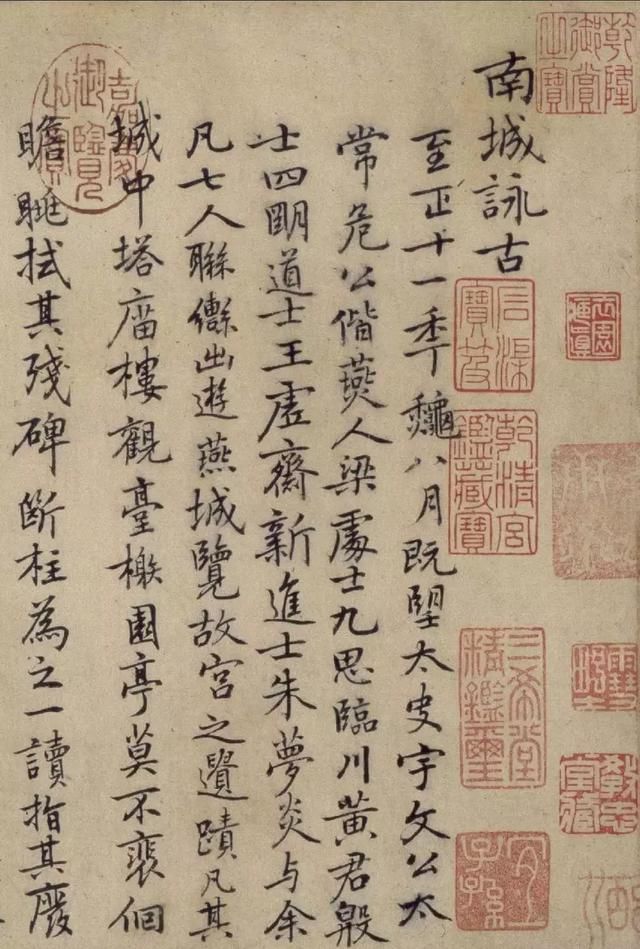 乾隆御賞之寶
南城詠古
石渠寶笈
乾清宮鑑藏寶
三希堂精鑑璽
宜子孫
至正十一秊龝八月既望太史宇文公太
常危公偕燕人梁處士九思臨川黃君殷
士四朙道士王虛齋新進士朱夢炎与余
凡七人聯轡出遊燕城覽故宮之遺蹟凡其
城中塔庿樓觀臺榭園亭莫不裵佪
瞻眺拭其殘碑斷柱為之一讀指其廢
嘉慶御覽之寶